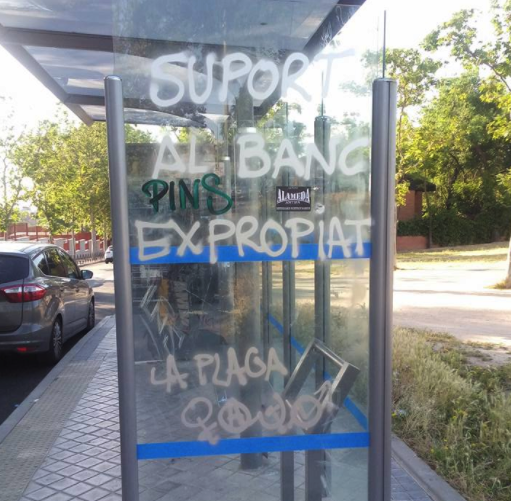 SUPORT
AL BANC
PINS
ALAMEDA
EXPROPIAT
LA PLAGA